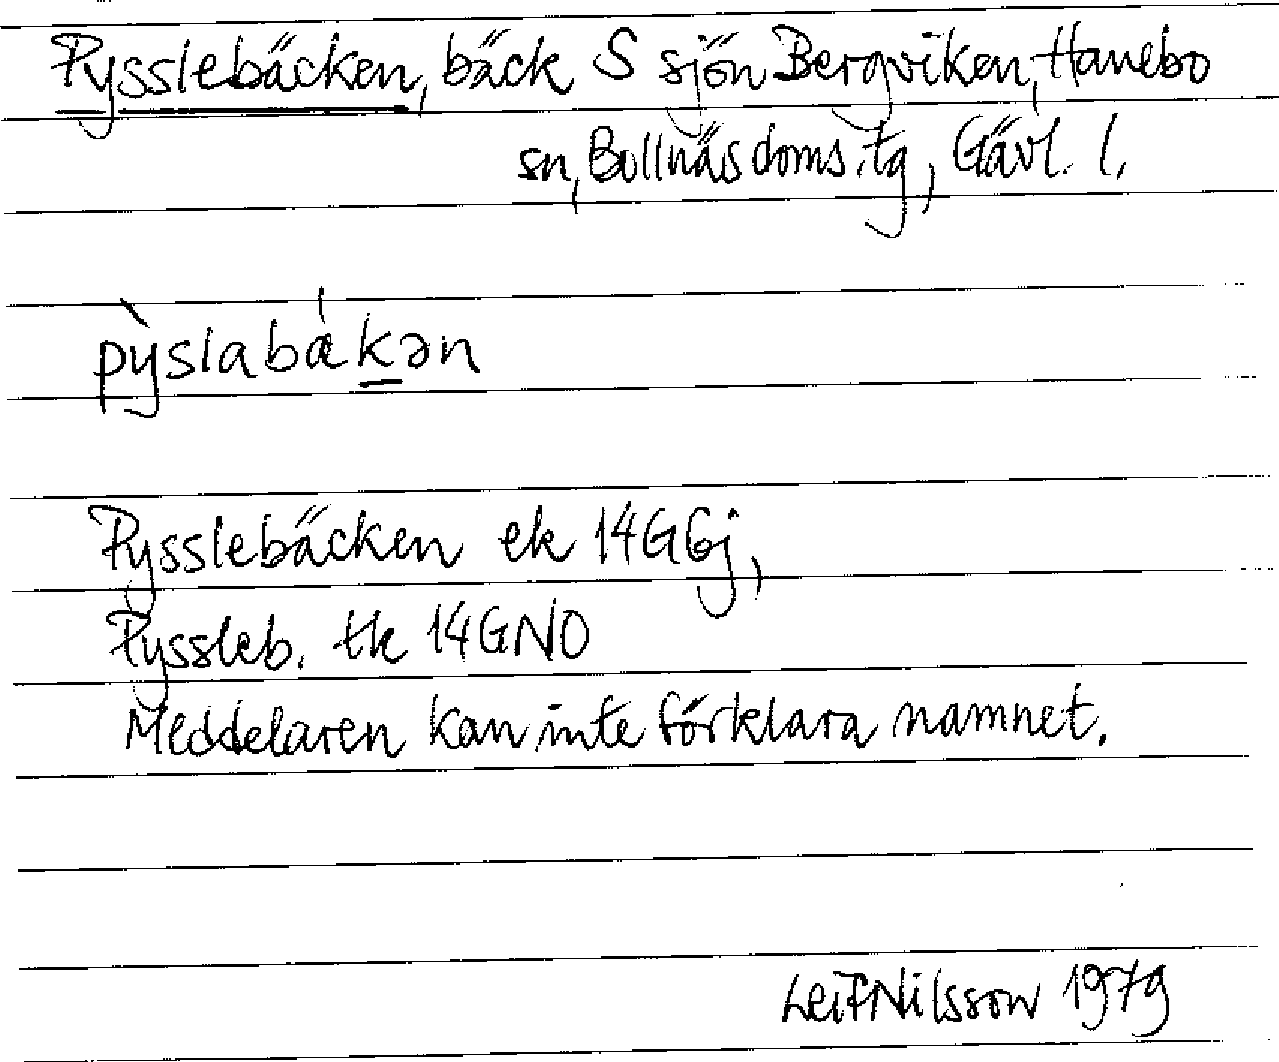 Pysslebäcken, bäck S sjön Bergviken, Hanebo
sn, Bollnäs doms.tg, Gävl. l.
pỳslabákən
Pysslebäcken ek 14G6j,
Pyssleb. tk 14GNO
Meddelaren kan inte förklara namnet.
Leif Nilsson 1979